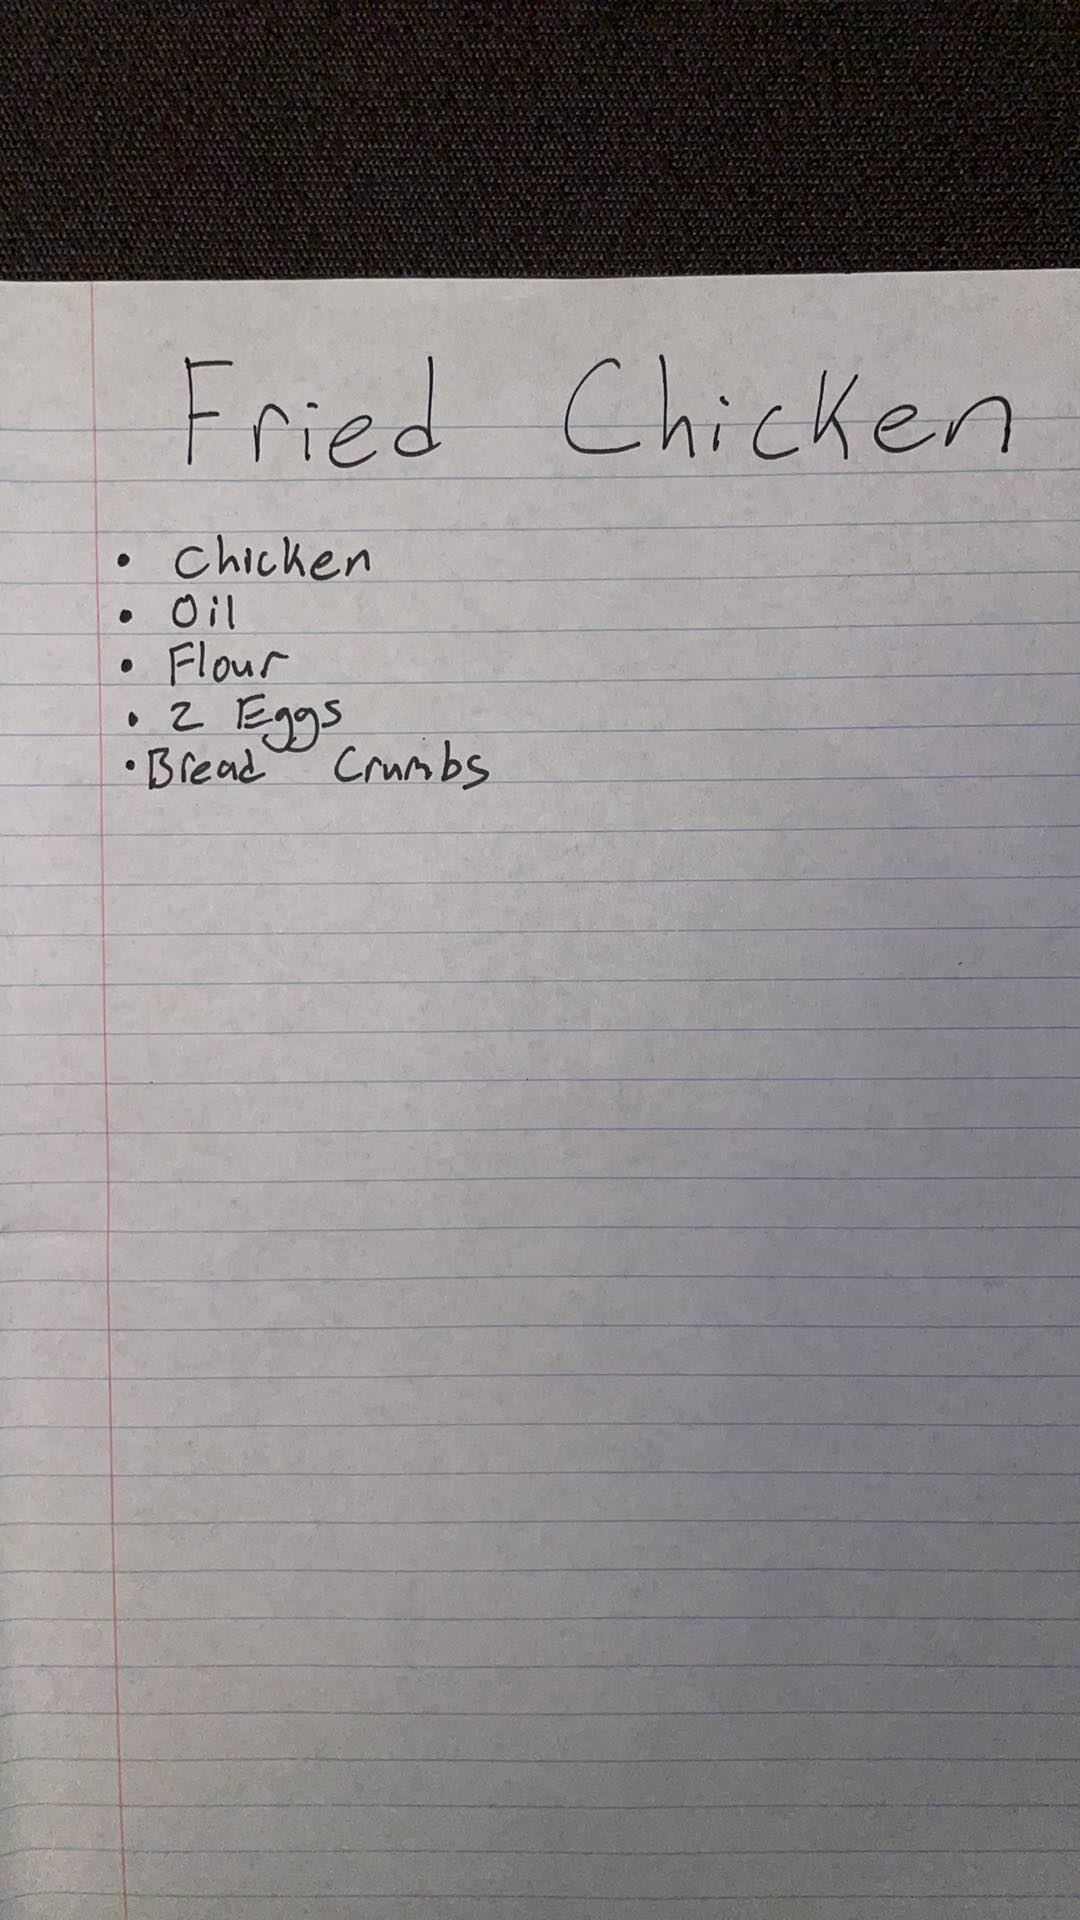 Fried Chicken
• Chicken
• Oil
• Flour
• 2 Eggs
• Bread Crumbs